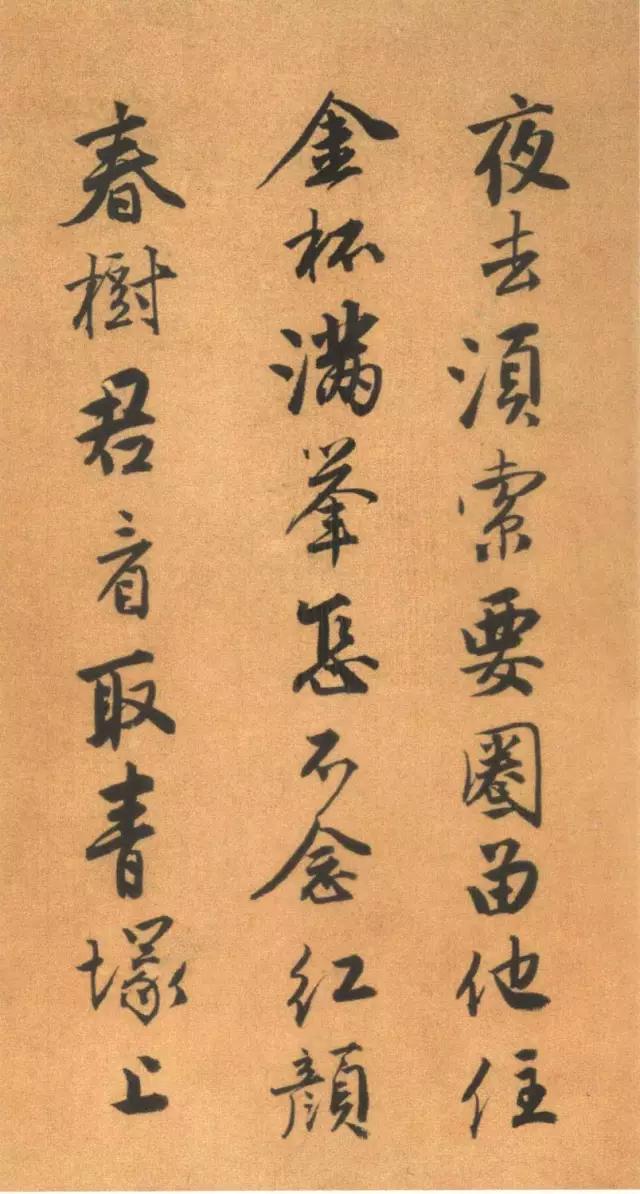 夜去須索要圈留他住
金杯滿举怎不念紅顔
春樹君看取青塚上